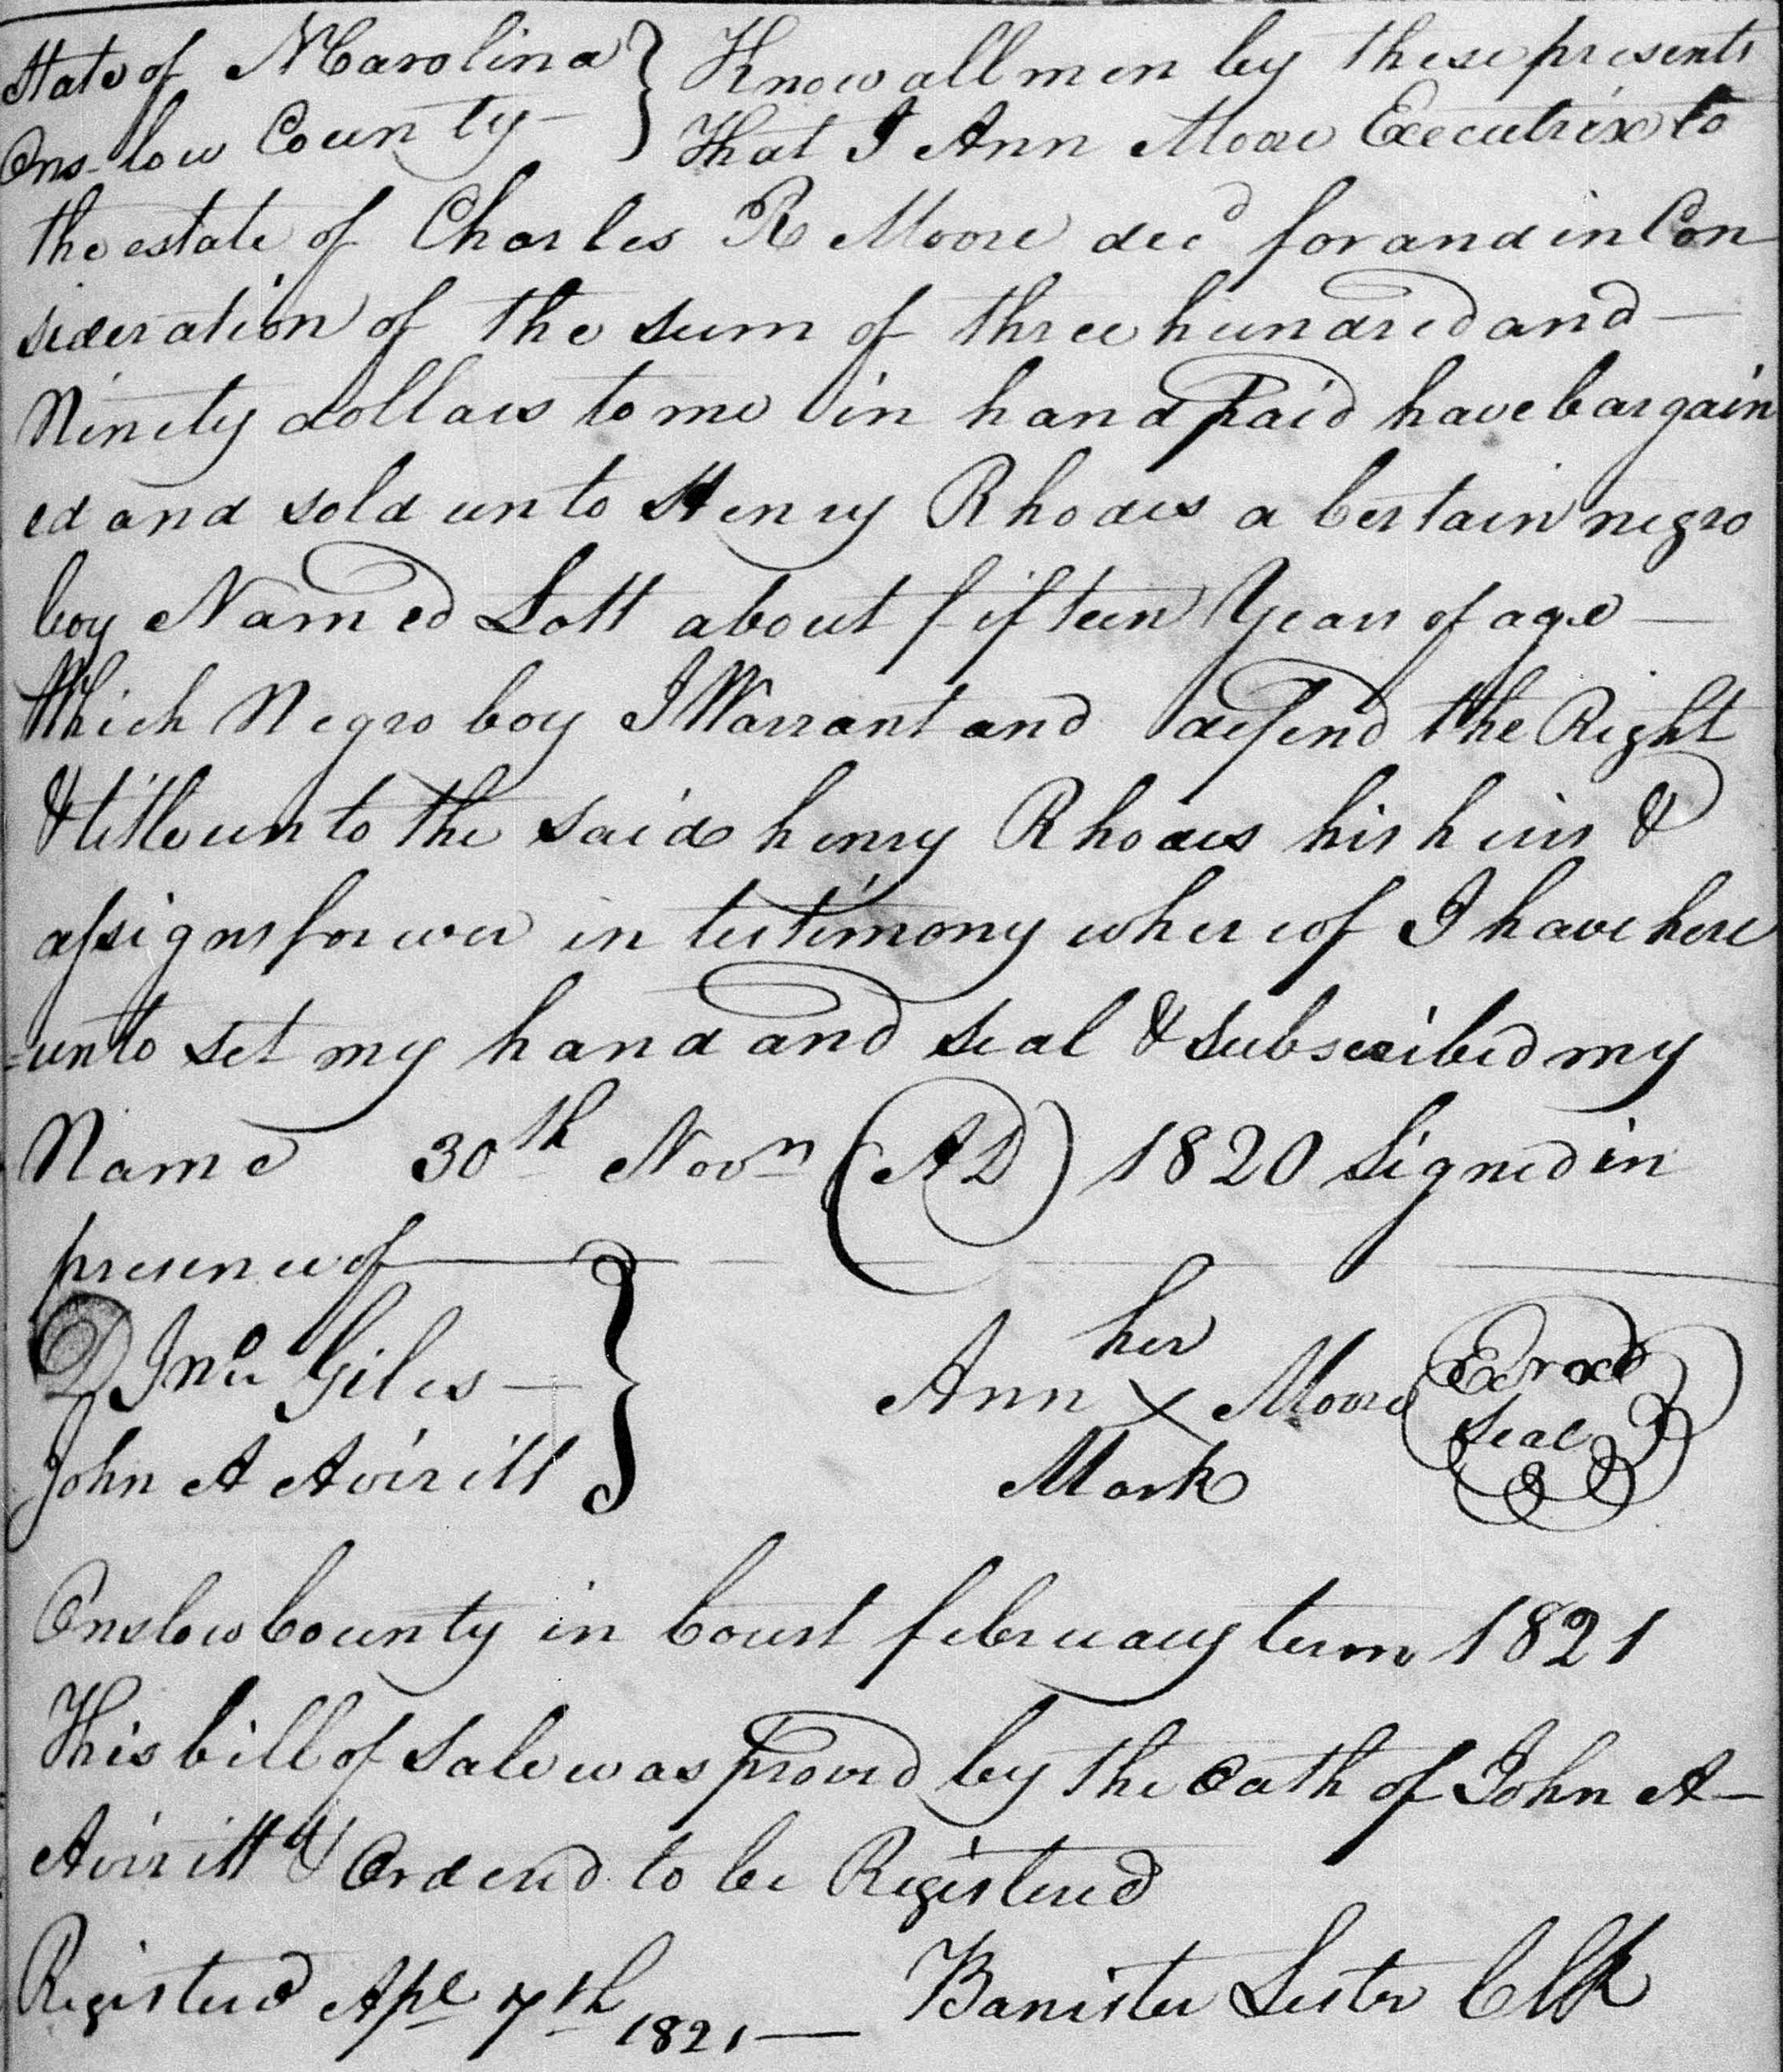 State of N Carolina } Know all men by these presents
Onslow County – } That I Ann Moore Executrix to
the estate of Charles R Moore decd for and in Con
sideration of the sum of three hundred and —
Ninety dollars to me in hand paid have bargain
ed and sold unto Henry Rhodes a Certain negro
boy Named Lott about fifteen Years of age —
Which Negro boy I Warrant and defend the Right
& title unto the said henry Rhodes his heirs &
assigns forever in testimony whereof I have here
=unto set my hand and seal & subscribed my
Name 30th Novn (AD) 1820 Signed in
presence of
D Jno Giles — }
her
Ann X Moore Exrx
Seal
John A Aviritt
Mark
Onslow County in Court february term 1821
This bill of Sale was proved by the Oath of John A –
Aviritt & Ordered to be Registered
Registered Apl 7th 1821 — Banister Lester Clk